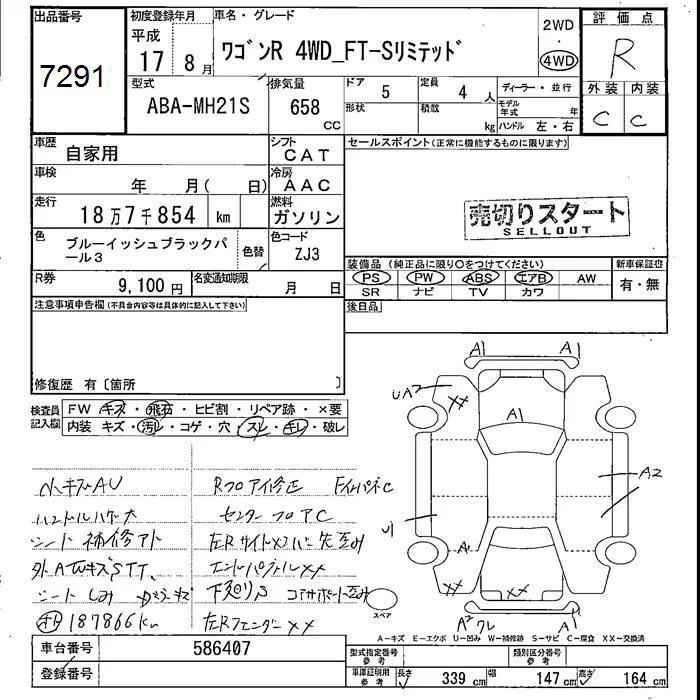 出品番号
7291
初度登録年月
平成
17 年 8 月
車名・グレード
ワゴンR 4WD_FT-Sリミテッド
2WD
・
4WD
評価点
R
外装 内装
C C
型式
ABA-MH21S
排気量
658
CC
ドア
5
定員
4 人
形状
積載
kg
ディーラー・並行
モデル年式 年
ハンドル 左・右
車歴
自家用
シフト
CAT
セールスポイント(正常に機能するものに限ります)
車検
年 月( 日)
冷房
AAC
走行
18万7千854 km
燃料
ガソリン
売切りスタート
SELLOUT
色
ブルーイッシュブラックパール3
色替
色コード
ZJ3
装備品(純正品に限り○をつけてください)
PS PW ABS エアB AW
SR ナビ TV カワ
新車保証書
有・無
R券
9,100 円
名変通知期限
月 日
後日品
注意事項申告欄(不具合内容等は具体的に記入して下さい)
修復歴 有〔箇所 〕
検査員記入欄
FW キズ・飛石・ヒビ割・リペア跡・×要
内装 キズ・汚レ・コゲ・穴・スレ・キレ・破レ
小キズAU
ハンドルハゲ大
シート補修アト
シートしみ
187866km
Rフロア修正
センターフロアC
エンドパネル××
コアサポート歪み
左Rフェンダー××
A1 A1
UA2
××
A1
A2
U1
A
×× ××
A2 ワレ
A1
スペア
A-キズ E-エクボ U-凹み W-補修跡 S-サビ C-腐食 XX-交換済
車台番号
586407
登録番号
型式指定番号
参考
類別区分番号
参考
車庫証明用
参考
長さ 339 cm 幅 147 cm 高さ 164 cm